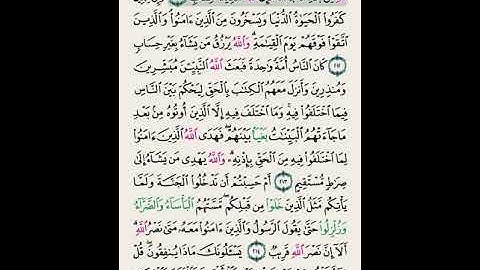 كَفَرُوا۟ ٱلْحَيَوٰةُ ٱلدُّنْيَا وَيَسْخَرُونَ مِنَ ٱلَّذِينَ ءَامَنُوا۟ۘ وَٱلَّذِينَ
ٱتَّقَوْا۟ فَوْقَهُمْ يَوْمَ ٱلْقِيَـٰمَةِۗ وَٱللَّهُ يَرْزُقُ مَن يَشَآءُ بِغَيْرِ حِسَابٍ
٢١٢ كَانَ ٱلنَّاسُ أُمَّةً وَٰحِدَةً فَبَعَثَ ٱللَّهُ ٱلنَّبِيِّـۧنَ مُبَشِّرِينَ
وَمُنذِرِينَ وَأَنزَلَ مَعَهُمُ ٱلْكِتَـٰبَ بِٱلْحَقِّ لِيَحْكُمَ بَيْنَ ٱلنَّاسِ
فِيمَا ٱخْتَلَفُوا۟ فِيهِۚ وَمَا ٱخْتَلَفَ فِيهِ إِلَّا ٱلَّذِينَ أُوتُوهُ مِنۢ بَعْدِ
مَا جَآءَتْهُمُ ٱلْبَيِّنَـٰتُ بَغْيًۢا بَيْنَهُمْۖ فَهَدَى ٱللَّهُ ٱلَّذِينَ ءَامَنُوا۟
لِمَا ٱخْتَلَفُوا۟ فِيهِ مِنَ ٱلْحَقِّ بِإِذْنِهِۦۗ وَٱللَّهُ يَهْدِى مَن يَشَآءُ إِلَىٰ
صِرَٰطٍ مُّسْتَقِيمٍ ٢١٣ أَمْ حَسِبْتُمْ أَن تَدْخُلُوا۟ ٱلْجَنَّةَ وَلَمَّا
يَأْتِكُم مَّثَلُ ٱلَّذِينَ خَلَوْا۟ مِن قَبْلِكُمۖ مَّسَّتْهُمُ ٱلْبَأْسَآءُ وَٱلضَّرَّآءُ
وَزُلْزِلُوا۟ حَتَّىٰ يَقُولَ ٱلرَّسُولُ وَٱلَّذِينَ ءَامَنُوا۟ مَعَهُۥ مَتَىٰ نَصْرُ ٱللَّهِۗ
أَلَآ إِنَّ نَصْرَ ٱللَّهِ قَرِيبٌ ٢١٤ يَسْـَٔلُونَكَ مَاذَا يُنفِقُونَۖ قُلْ